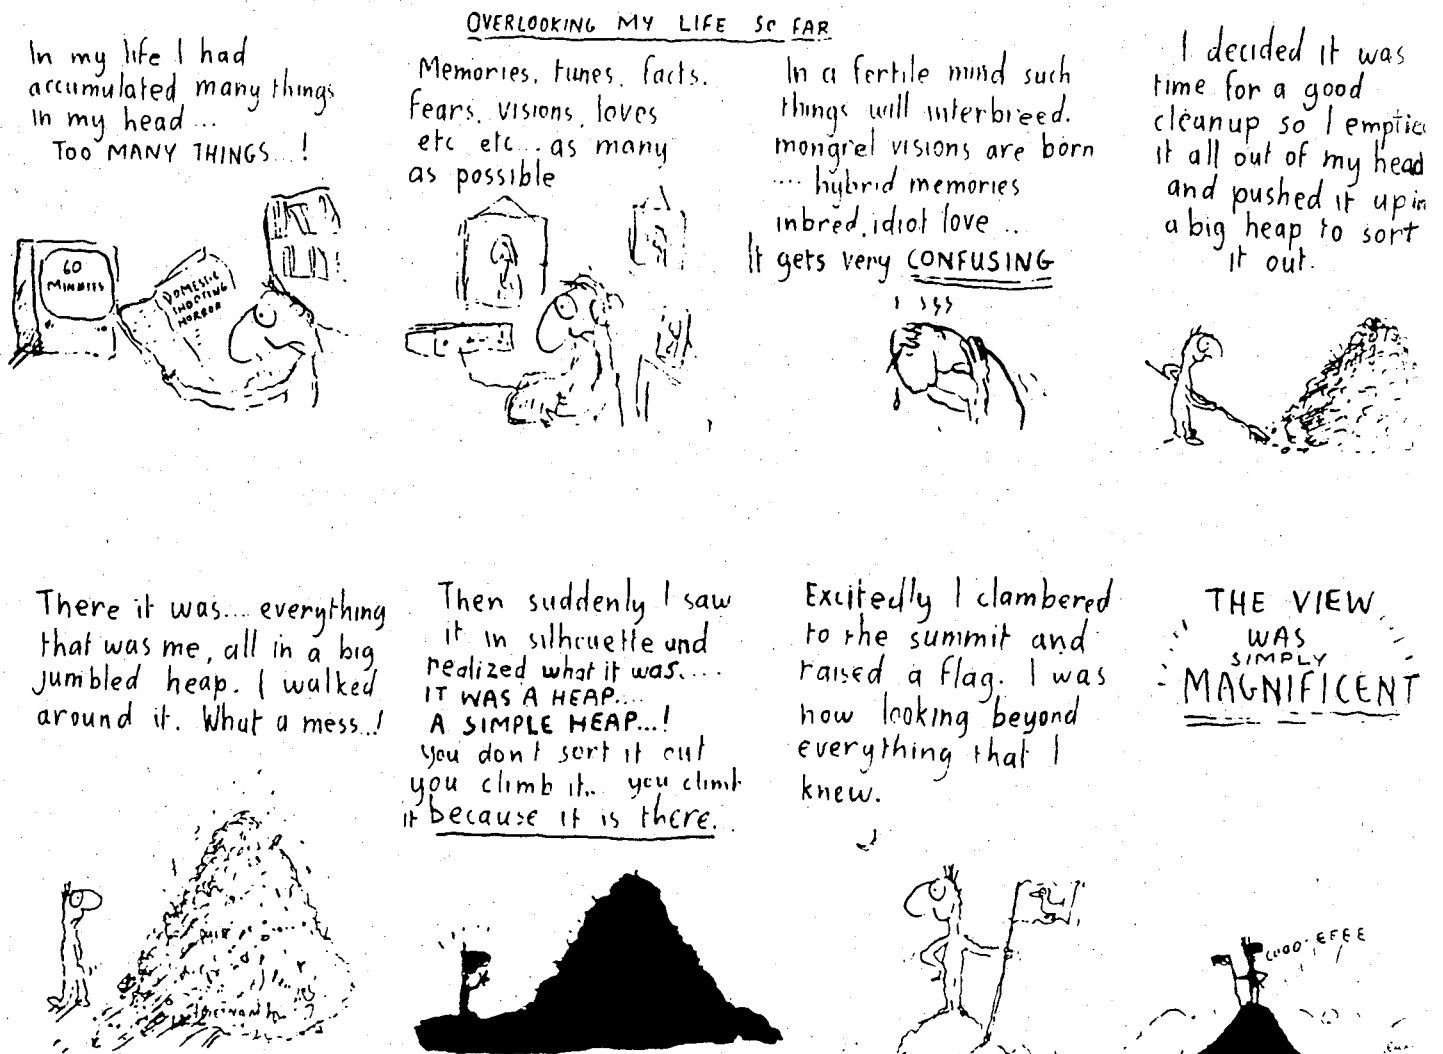 OVERLOOKING MY LIFE SO FAR
In my life I had
accumulated many things
in my head...
TOO MANY THINGS...!
60
MINUTES
DOMESTIC
SHOOTING
HORROR
Memories, tunes, facts,
fears, visions, loves
etc etc... as many
as possible
In a fertile mind such
things will interbreed.
mongrel visions are born
.... hybrid memories
inbred, idiot love ...
It gets very CONFUSING
I decided it was
time for a good
cleanup so I emptied
it all out of my head
and pushed it up in
a big heap to sort
it out.
There it was.... everything
that was me, all in a big
jumbled heap. I walked
around it. What a mess..!
Then suddenly I saw
it in silhouette and
realized what it was.....
IT WAS A HEAP....
A SIMPLE HEAP...!
you don't sort it out
you climb it... you climb
it because it is there.
Excitedly I clambered
to the summit and
raised a flag. I was
now looking beyond
everything that I
knew.
THE VIEW
WAS
SIMPLY
MAGNIFICENT
COOO-EEEE